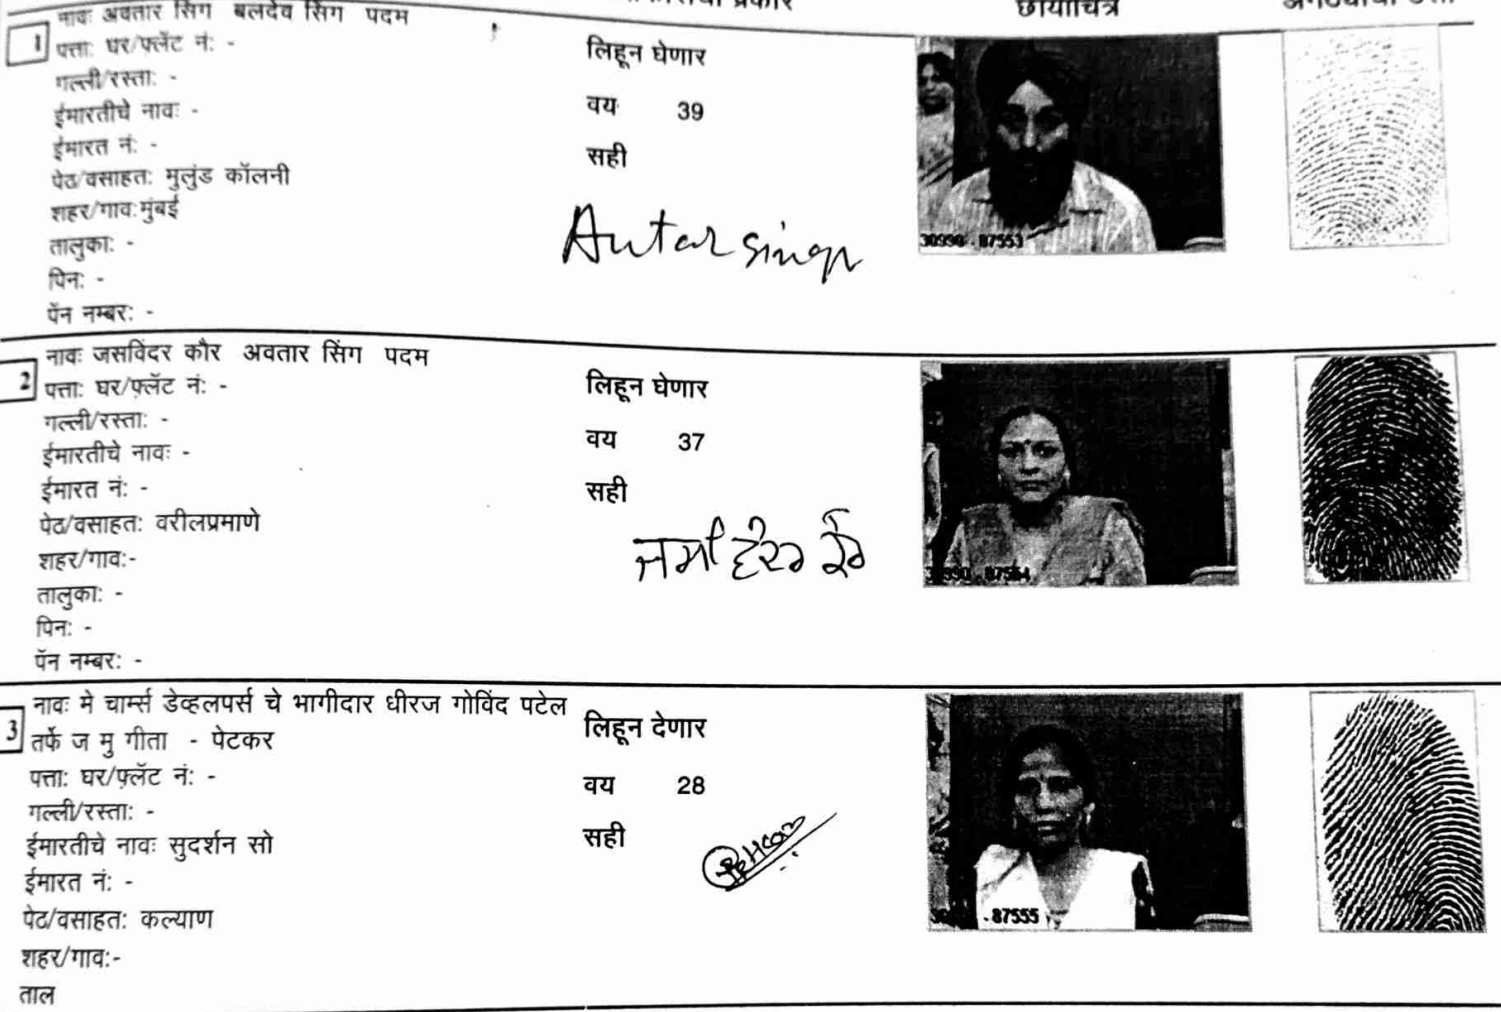 प्रकार
छायाचित्र
1
नावः अवतार सिंग बलदेव सिंग पदम
पत्ताः घर/फ्लॅट नं: -
गल्ली/रस्ता: -
ईमारतीचे नावः -
ईमारत नं: -
पेठ/वसाहत: मुलुंड कॉलनी
शहर/गाव:मुंबई
तालुका: -
पिन: -
पॅन नम्बर: -
लिहून घेणार
वय 39
सही
Autar singh
30990 - 87553
2
नावः जसविंदर कौर अवतार सिंग पदम
पत्ताः घर/फ्लॅट नं: -
गल्ली/रस्ता: -
ईमारतीचे नावः -
ईमारत नं: -
पेठ/वसाहत: वरीलप्रमाणे
शहर/गाव:-
तालुका: -
पिन: -
पॅन नम्बर: -
लिहून घेणार
वय 37
सही
87554
3
नावः मे चार्म्स डेव्हलपर्स चे भागीदार धीरज गोविंद पटेल
तर्फे ज मु गीता - पेटकर
पत्ताः घर/फ्लॅट नं: -
गल्ली/रस्ता: -
ईमारतीचे नावः सुदर्शन सो
ईमारत नं: -
पेठ/वसाहत: कल्याण
शहर/गाव:-
ताल
लिहून देणार
वय 28
सही
- 87555